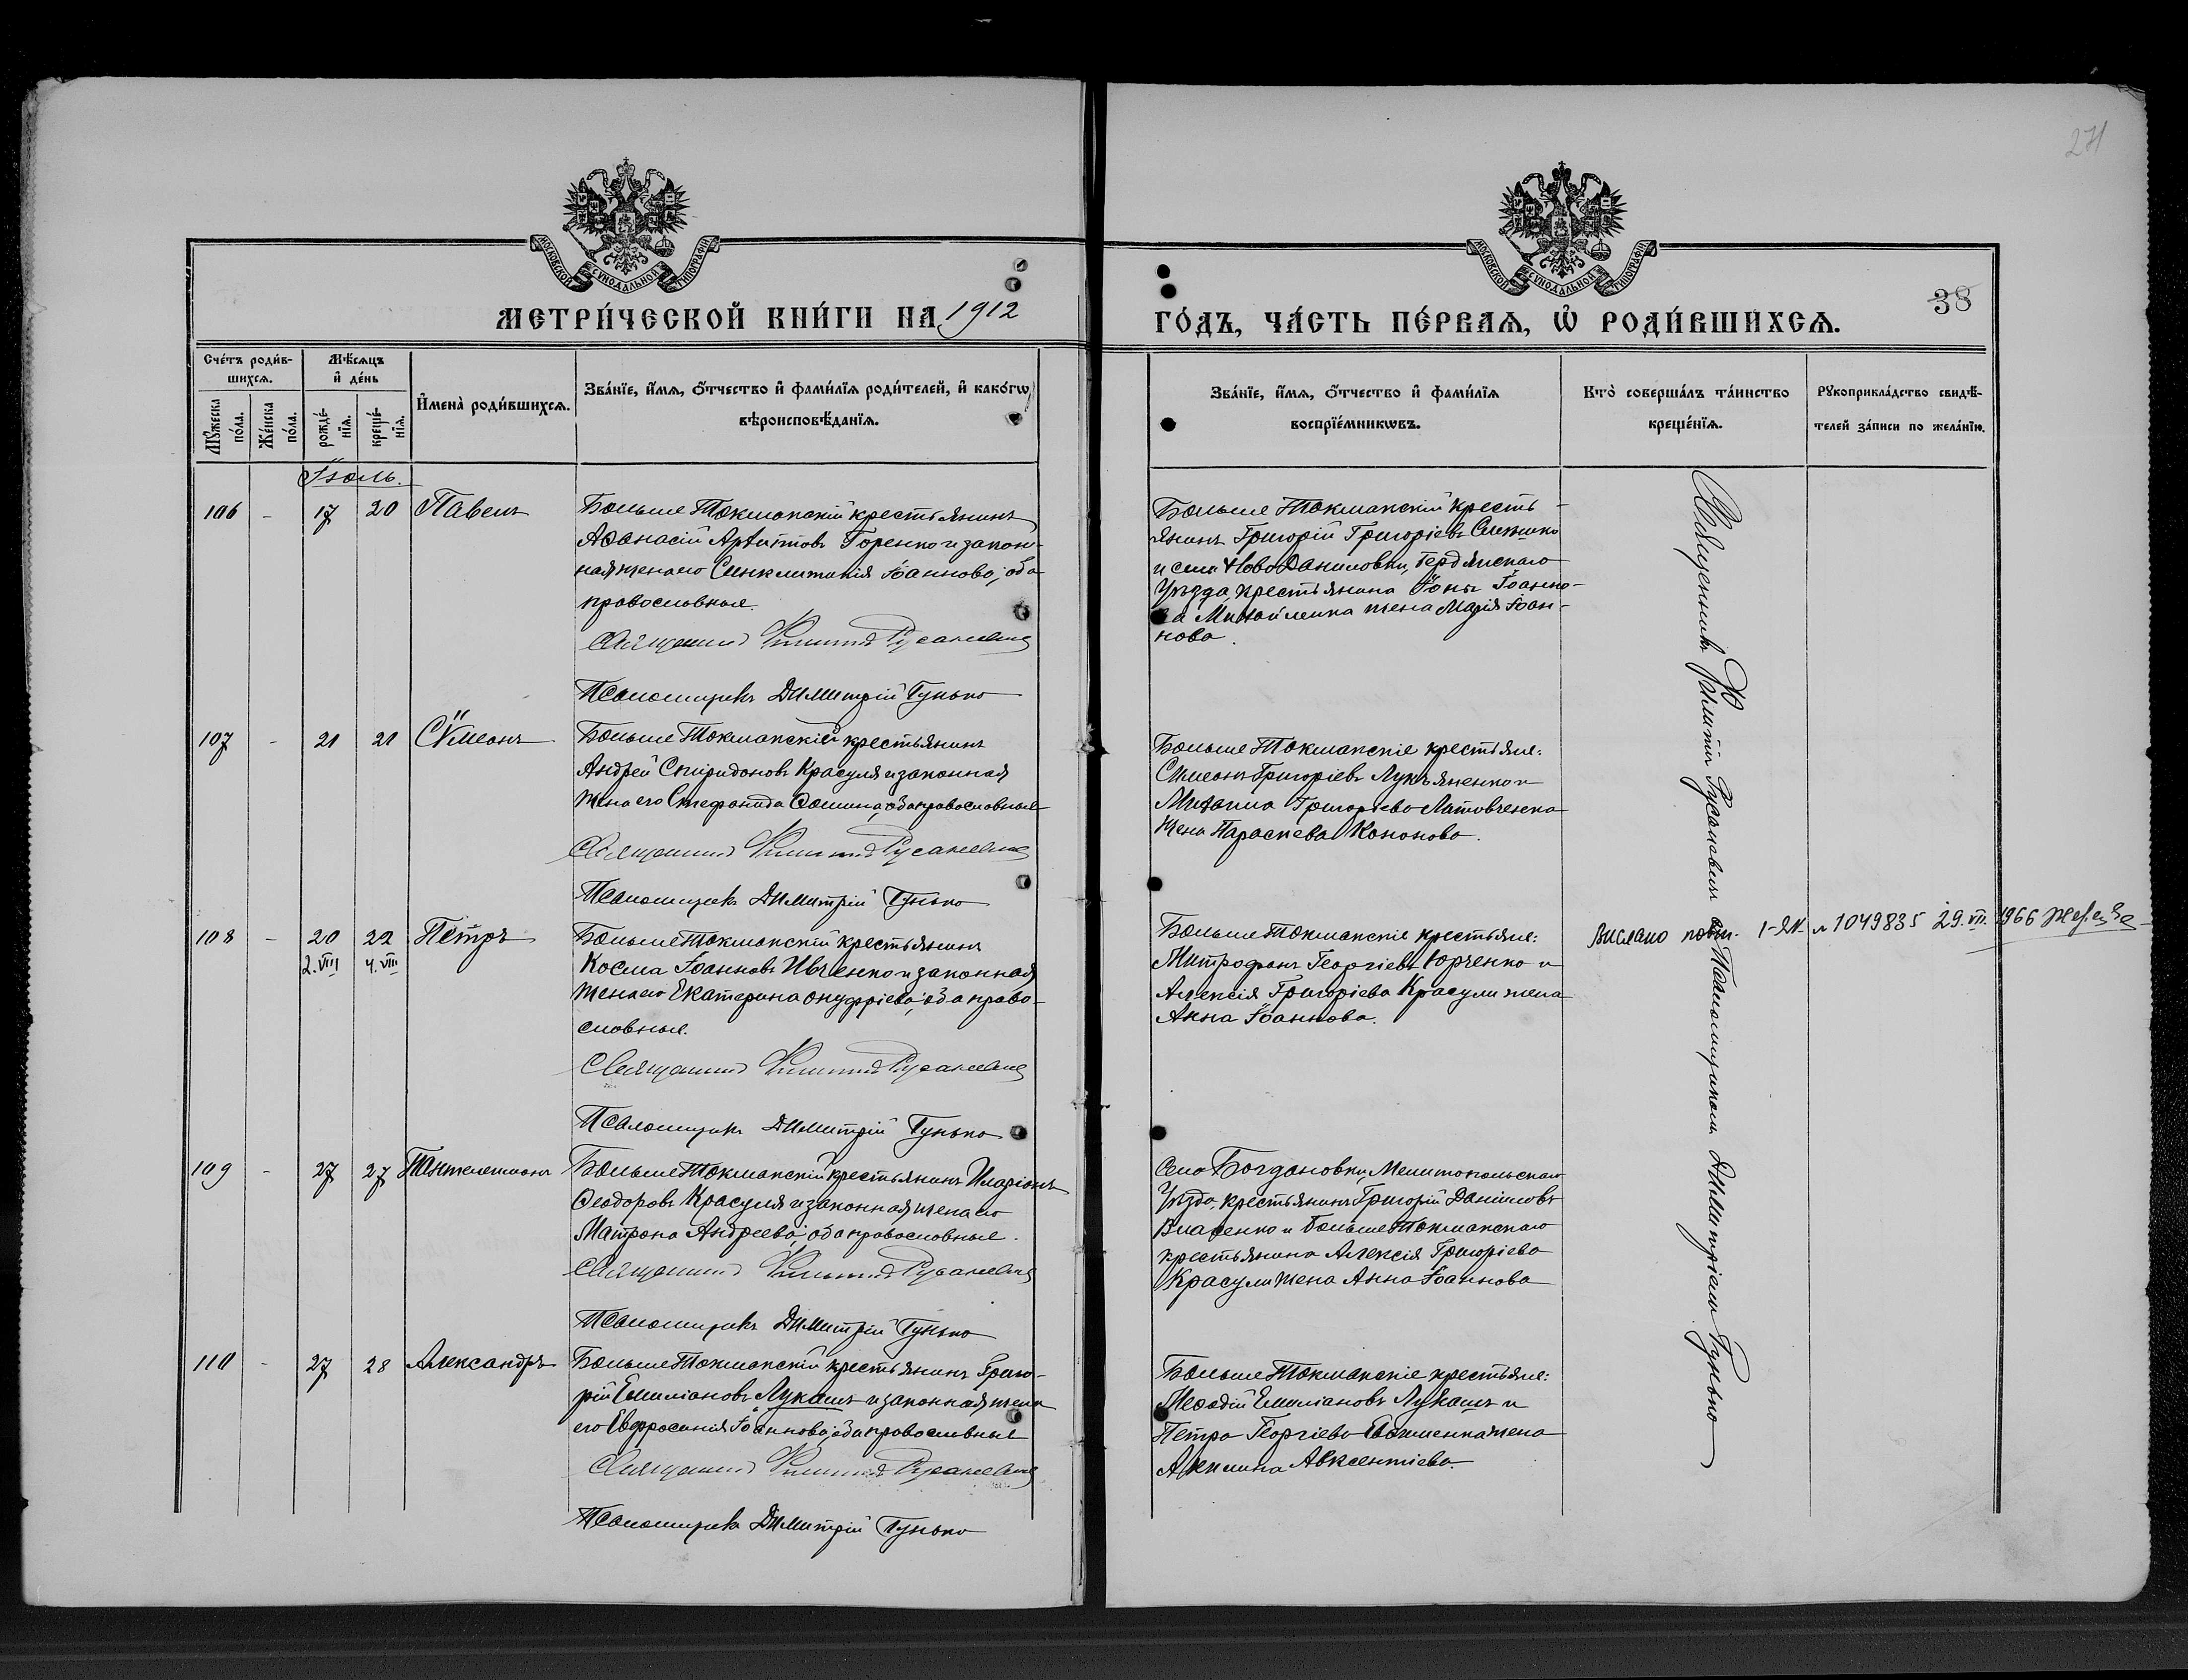 271
МОСКОВСКОЙ СѴНОДАЛЬНОЙ ТИПОГРАФІИ
МОСКОВСКОЙ СѴНОДАЛЬНОЙ ТИПОГРАФІИ
МЕТРИ́ЧЕСКОЙ КНИ́ГИ НА 1912
ГО́ДЪ, ЧА́СТЬ ПЕ́РВАЯ, Ѡ РОДИ́ВШИХСЯ.
38
Сче́тъ роди́в-
шихся.
Мѣ́сяцъ
и҆ де́нь
Мꙋ́жеска
по́ла.
Же́нска
по́ла.
рожде́-
нїя.
креще́-
нїя.
И҆мена̀ роди́вшихся.
Зва́нїе, и҆́мя, ѻ҆́тчество и҆ фами́лїя роди́телей, и҆ како́гѡ
вѣроисповѣ́данїя.
Зва́нїе, и҆́мя, ѻ҆́тчество и҆ фами́лїя
воспрїе́мникѡвъ.
Кто̀ соверша́лъ та́инство
креще́нїя.
Рꙋкоприкла́дство свидѣ́-
телей за́писи по жела́нїю.
Іюль.
106 - 17 20 Павелъ
Больше Токмакскій крестьянинъ
Аѳанасій Горенко и закон-
ная жена его Синклитикія Іоаннова, оба
православные.
Священникъ Филиппъ Русаневичъ
Псаломщикъ Димитрій Гунько
Больше Токмакскій кресть-
янинъ Григорій Григоріевъ
и села НовоДаниловки, Бердянскаго
Уѣзда, крестьянина Іоны Іоанно-
ва Михайленка жена Марія Іоан-
нова.
107 - 21 21 Сѵмеонъ
Больше Токмакскій крестьянинъ
Андрей Спиридоновъ Красуля и законная
жена его Стефанида Ѳомина, оба православные
Священникъ Филиппъ Русаневичъ
Псаломщикъ Димитрій Гунько
Больше Токмакскіе крестьяне:
Симеонъ Григоріевъ Лукъяненко и
Михаила Григорьева Латовченка
жена Параскева Кононова.
108 - 20 22 Петръ
2.VIII 4.VIII
Больше Токмакскій крестьянинъ
Косма Іоанновъ Ивченко и законная
жена его Екатерина Онуфріева, оба право-
славные.
Священникъ Филиппъ Русаневичъ
Псаломщикъ Димитрій Гунько
Больше Токмакскіе крестьяне:
Митрофанъ Георгіевъ Юрченко и
Алексія Григоріева Красули жена
Анна Іоаннова.
Вислано повт. 1-ЯП № 1049835 29.VII.1966
109 - 27 27 Пантелеимонъ
Больше Токмакскій крестьянинъ Иларіонъ
Ѳеодоровъ Красуля и законная жена его
Матрона Андреева, оба православные.
Священникъ Филиппъ Русаневичъ
Псаломщикъ Димитрій Гунько
Села Богдановки, Мелитопольскаго
Уѣзда, крестьянинъ Григорій Даниловъ
Власенко и Больше Токмакскаго
крестьянина Алексія Григоріева
Красули жена Анна Іоаннова
110 - 27 28 Александръ
Больше Токмакскій крестьянинъ Григо-
рій Емиліановъ Лукашъ и законная жена
его Евфросинія Іоаннова, оба православные
Священникъ Филиппъ Русаневичъ
Псаломщикъ Димитрій Гунько
Больше Токмакскіе крестьяне:
Меѳодій Емиліановъ Лукашъ и
Петра Георгіева жена
Акилина Авксентіева.
Священникъ Филиппъ Русаневичъ съ Псаломщикомъ Димитріемъ Гунько